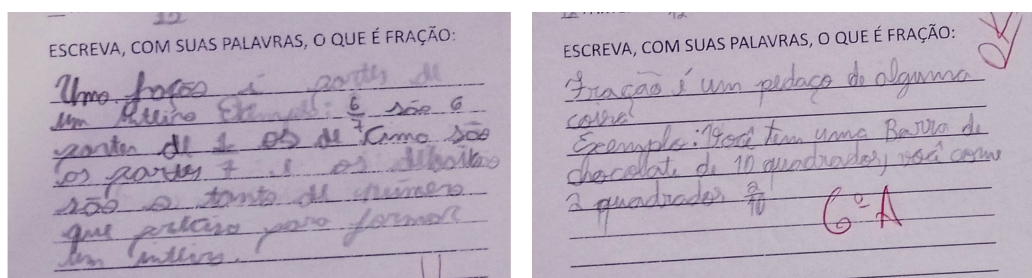 12
ESCREVA, COM SUAS PALAVRAS, O QUE É FRAÇÃO:
Uma fração é partes de
um inteiro Exemplo: 6/7 são 6
partes de 7 os de cima são
as partes e os debaixo
são o tanto de número
que preciso para formar
um inteiro.
12
ESCREVA, COM SUAS PALAVRAS, O QUE É FRAÇÃO:
Fração é um pedaço de alguma
coisa
Exemplo: Você tem uma Barra de
chocolate de 10 quadrados, você come
2 quadrados 2/10
6º A